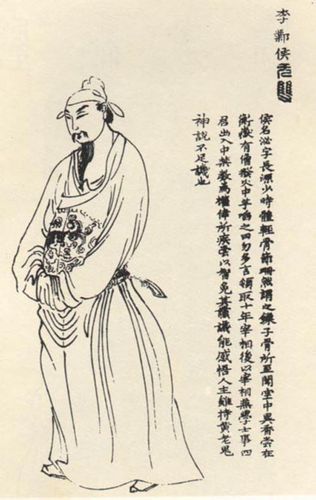 李鄴侯
侯名泌字長源少時體輕骨節珊然謂之鎖子骨所至聞空中異香嘗在
衡嶽有僧撥火中芋啗之曰勿多言領取十年宰相後以宰相兼學士事四
君出入中禁數為權倖所疾嘗以智免其讜議能感悟人主雖持黃老鬼
神說不足譏也